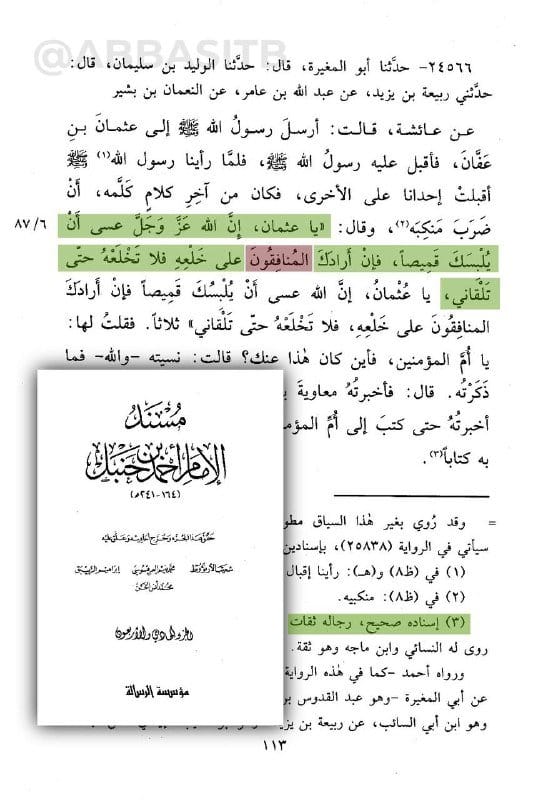 @ABBASITB
٢٤٥٦٦- حدَّثنا أبو المغيرة، قال: حدَّثنا الوليد بن سليمان، قال:
حدَّثني ربيعة بن يزيد، عن عبد الله بن عامر، عن النعمان بن بشير
عن عائشة، قالت: أرسلَ رسولُ الله ﷺ إلى عثمانَ بنِ
عفَّانَ، فأقبل عليه رسولُ الله ﷺ، فلمَّا رأينا رسول الله(١) ﷺ
أقبلتْ إحدانا على الأخرى، فكان من آخِرِ كلامٍ كلَّمه، أَنْ
ضَرَبَ مَنكِبَه(٢)، وقال: «يا عثمان، إنَّ الله عَزَّ وَجَلَّ عسى أَنْ
٨٧/٦
يُلْبِسَكَ قَميصاً، فإنْ أرادَكَ المُنافِقُونَ على خَلْعِهِ فلا تَخْلَعْهُ حتَّى
تَلْقاني، يا عُثْمانُ، إنَّ الله عسى أنْ يُلْبِسَكَ قَمِيصاً فإنْ أرادَكَ
المنافقُونَ على خَلْعِهِ، فلا تَخْلَعْهُ حتَّى تَلْقاني» ثلاثاً. فقلتُ لها:
يا أُمَّ المؤمنين، فأين كان هٰذا عنكِ؟ قالت: نسيته -والله- فما
ذَكَرْتُه. قال: فأخبرتُهُ معاوية
أخبرتُهُ حتى كتبَ إلى أُمِّ
به كتاباً(٣).
= وقد رُوي بغير هٰذا السياق
سيأتي في الرواية (٢٥٨٣٨)، بإسنادين
(١) في (ظ٨) و(هـ): رأينا إقبال
(٢) في (ظ٨): منكبيه.
(٣) إسناده صحيح، رجاله ثقات
روى له النسائي وابن ماجه وهو ثقة.
ورواه أحمد -كما في هٰذه الرواية
عن أبي المغيرة -وهو عبد القدوس
وهو ابن أبي السائب، عن ربيعة بن
١١٣
مُسْنَدُ
الإمَامِ أحمَد بن حَنبَل
(١٦٤-٢٤١هـ)
شعيب الأرنؤوط
الجزء الحادي والأربعون
مؤسسة الرسالة